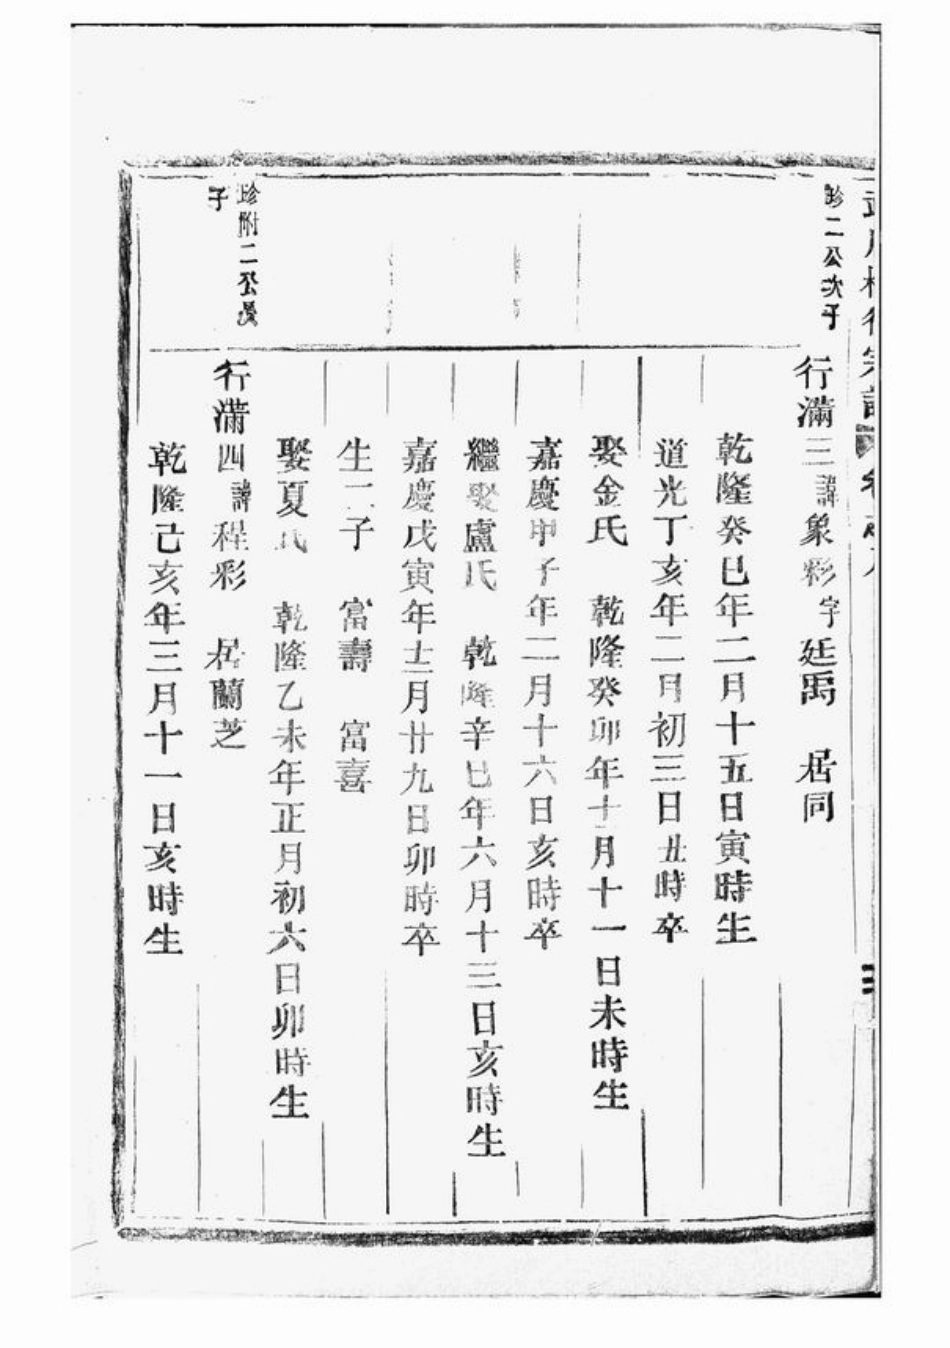 珍二公次子
行滿三諱象彩字廷禹 居同
乾隆癸巳年二月十五日寅時生
道光丁亥年二月初三日丑時卒
娶金氏 乾隆癸卯年十月十一日未時生
嘉慶甲子年二月十六日亥時卒
繼娶盧氏 乾隆辛巳年六月十三日亥時生
嘉慶戊寅年十二月廿九日卯時卒
生二子 富壽 富喜
娶夏氏 乾隆乙未年正月初六日卯時生
珍附二公長子
行滿四諱程彩 居蘭芝
乾隆己亥年三月十一日亥時生